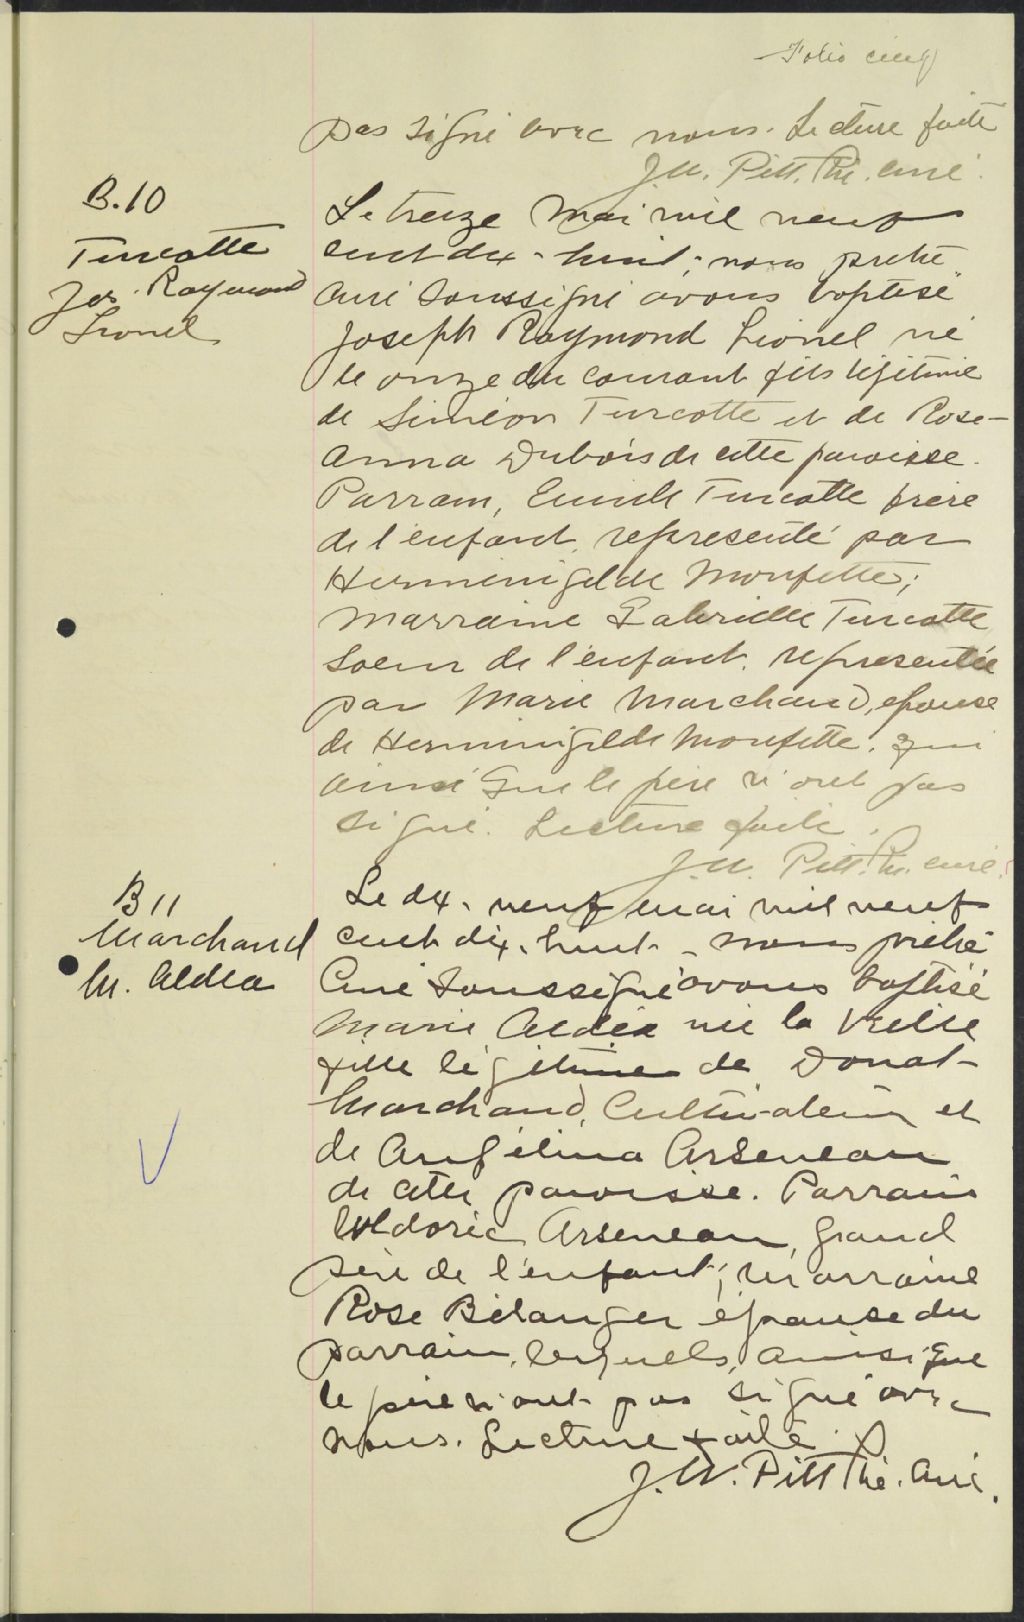 Folio cinq
pas signé avec nous. Lecture faite
J.W. Pitt. Ptre. curé.
B.10
Turcotte
Jos. Raymond
Lionel
Le treize mai mil neuf
cent dix-huit; nous prêtre
curé soussigné avons baptisé
Joseph Raymond Lionel né
le onze du courant fils légitime
de Siméon Turcotte et de Rose-
Anna Dubois de cette paroisse.
Parrain, Emile Turcotte frère
de l'enfant, représenté par
Herménigilde Monfette;
marraine Gabrielle Turcotte
soeur de l'enfant, représentée
par Marie Marchand, épouse
de Herménigilde Monfette. qui
ainsi que le père n'ont pas
signé. Lecture faite.
J.W. Pitt. Ptre. curé.
B 11
Marchand
M. Aldea
Le dix-neuf mai mil neuf
cent dix-huit - nous prêtre
curé soussigné avons baptisé
Marie Aldéa née la veille
fille légitime de Donat
Marchand, Cultivateur et
de Angélina Arseneau
de cette paroisse. Parrain
Arseneau, grand
père de l'enfant; marraine
Rose Bélanger épouse du
parrain, lesquels, ainsi que
le père n'ont pas signé avec
nous. Lecture faite.
J.W. Pitt Ptre. curé.